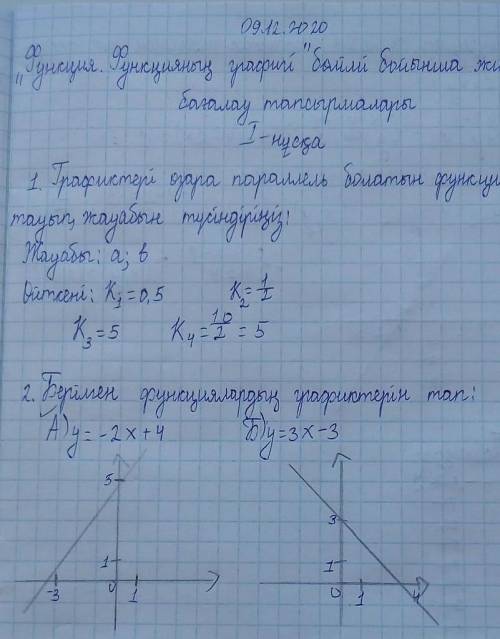 09.12.2020
"Функция. Функцияның графигі" бөлімі бойынша жи
бағалау тапсырмалары
I-нұсқа
1. Графиктері өзара параллель болатын функци
тауып, жауабын түсіндіріңіз:
Жауабы: а; в
Өйткені: K₁=0,5 K₂=1/2
K₃=5 K₄=10/2=5
2. Берілген функциялардың графиктерін тап:
А) y=-2x+4 Б) y=3x-3
5 3
1 1
-3 0 1 0 1 4